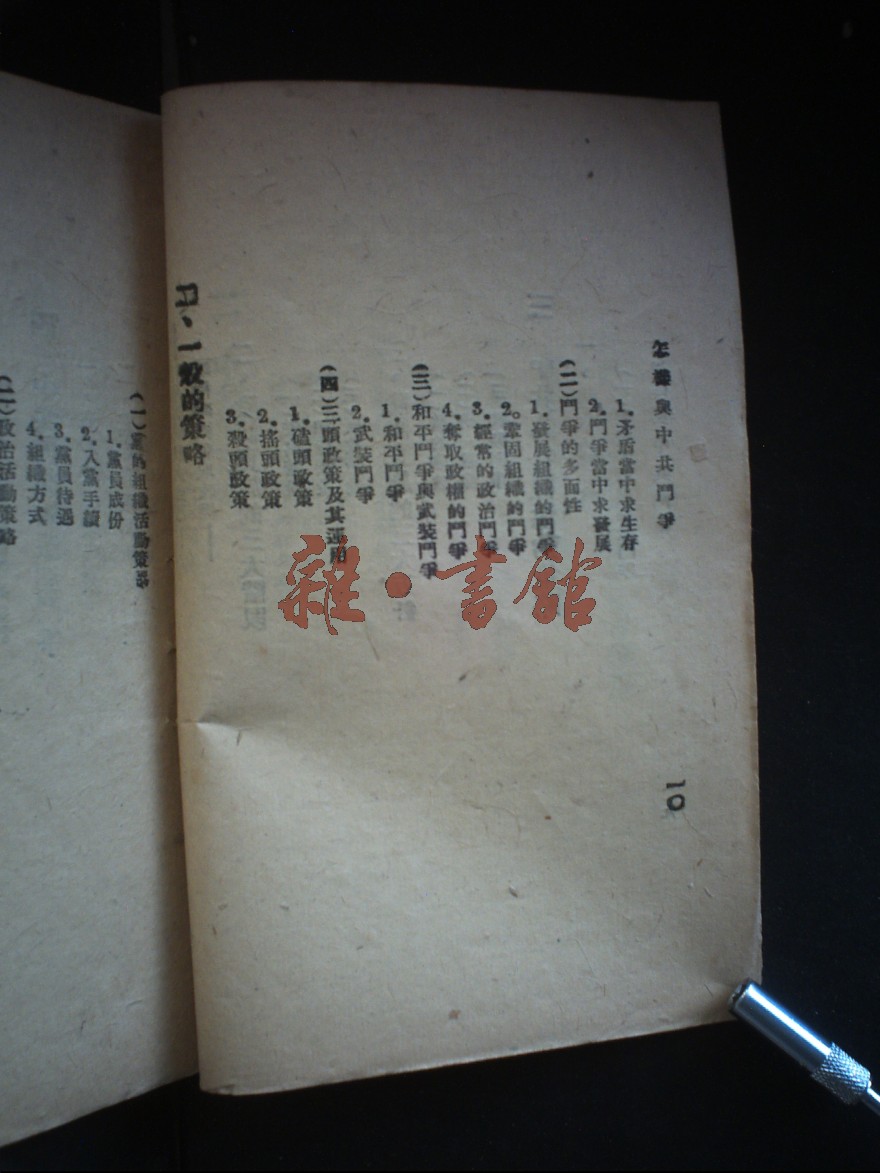 怎樣與中共鬥爭
10
1.矛盾當中求生存
2.鬥爭當中求發展
(二)鬥爭的多面性
1.發展組織的鬥爭
2.鞏固組織的鬥爭
3.經常的政治鬥爭
4.奪取政權的鬥爭
(三)和平鬥爭與武裝鬥爭
1.和平鬥爭
2.武裝鬥爭
(四)三頭政策及其運用
1.磕頭政策
2.搖頭政策
3.殺頭政策
一般的策略
(一)黨的組織活動策略
1.黨員成份
2.入黨手續
3.黨員待遇
4.組織方式
(二)政治活動策略
雜·書館